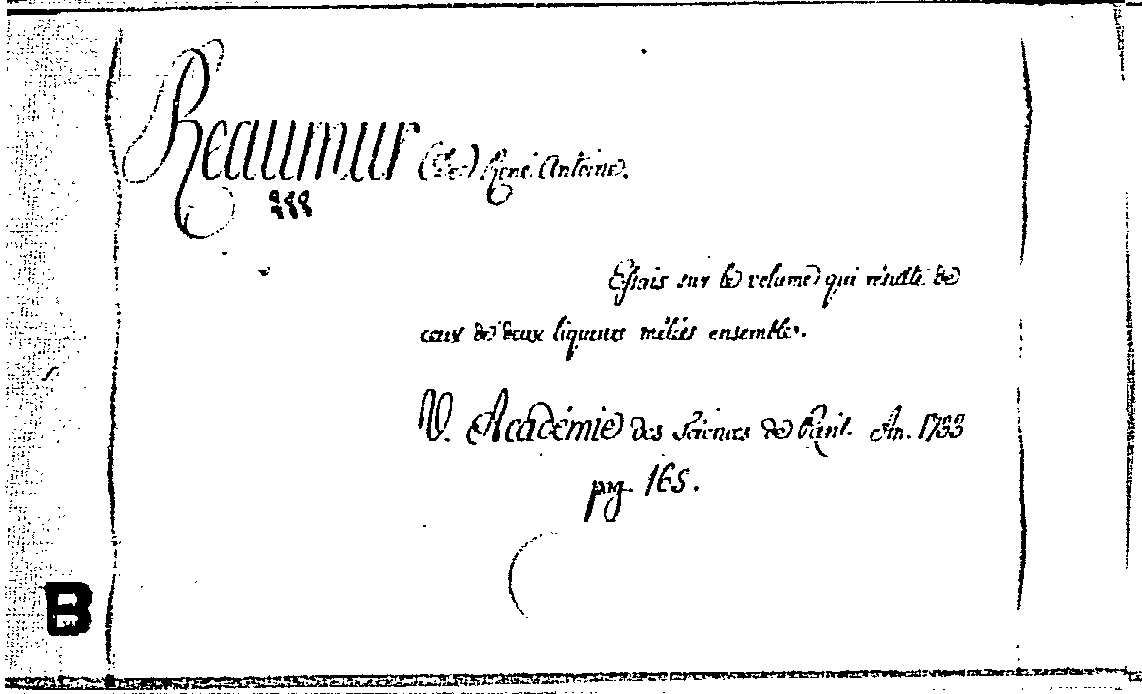 Reaumur (de) René Antoine.
Essais sur le volume qui résulte de
ceux de deux liqueurs mêlées ensemble.
V. Académie des Sciences de Paris. An. 1733
pag. 165.
B